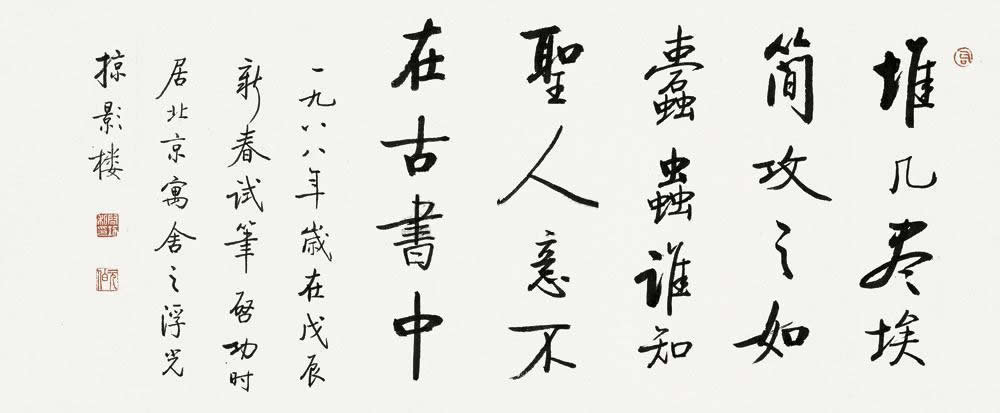 堆几尽埃
简攻之如
蠹蟲谁知
聖人意不
在古書中
一九八八年歲在戊辰
新春试筆啓功时
居北京寓舍之浮光
掠影楼